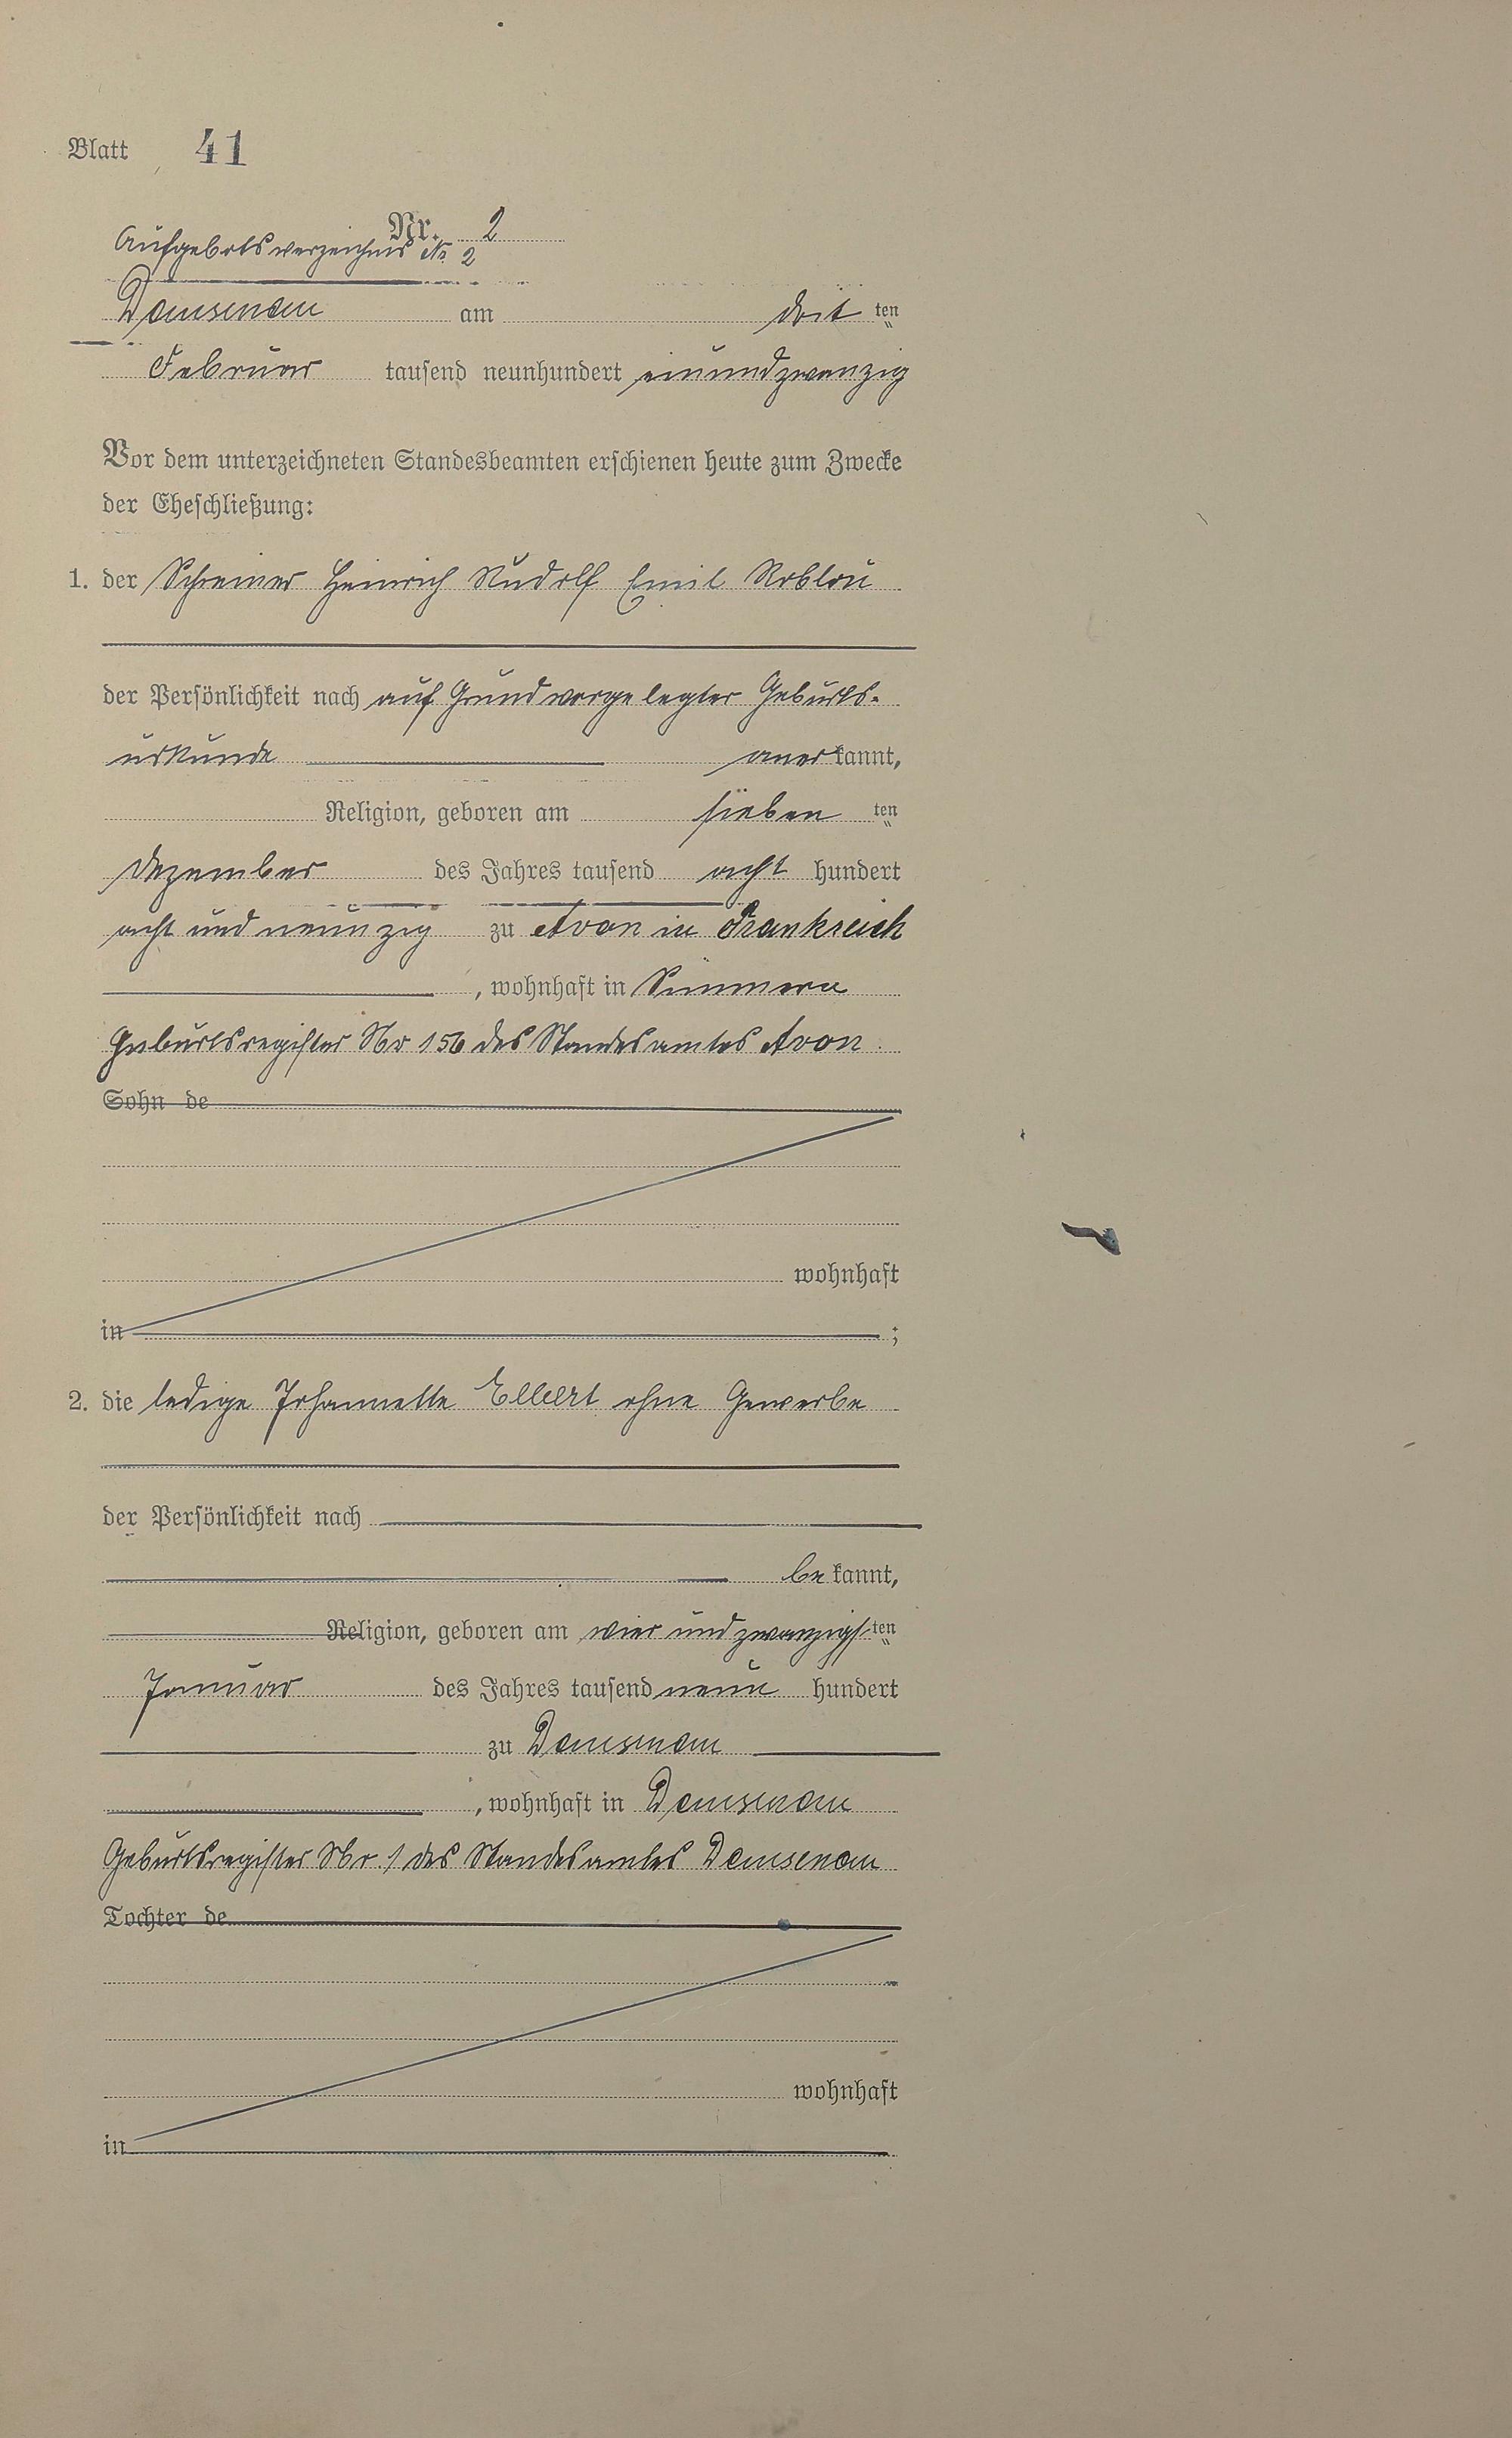 Blatt 41
Nr. 2
Aufgebotsverzeichnis No 2
Dausenau am drit ten
Februar tausend neunhundert einundzwanzig
Vor dem unterzeichneten Standesbeamten erschienen heute zum Zwecke
der Eheschließung:
1. der Schreiner Heinrich Rudolf Emil Roblou
der Persönlichkeit nach auf Grund vorgelegter Geburts-
urkunde anerkannt,
Religion, geboren am sieben ten
Dezember des Jahres tausend acht hundert
acht und neunzig zu Avon in Frankreich
, wohnhaft in Simmern
Geburtsregister Nr 156 des Standesamtes Avon.
Sohn de
wohnhaft
in ;
2. die ledige Johannette Ellert ohne Gewerbe
der Persönlichkeit nach
be kannt,
Religion, geboren am vier und zwanzigsten
Januar des Jahres tausend neun hundert
zu Dausenau
, wohnhaft in Dausenau
Geburtsregister Nr. 1 des Standesamtes Dausenau
Tochter de
wohnhaft
in